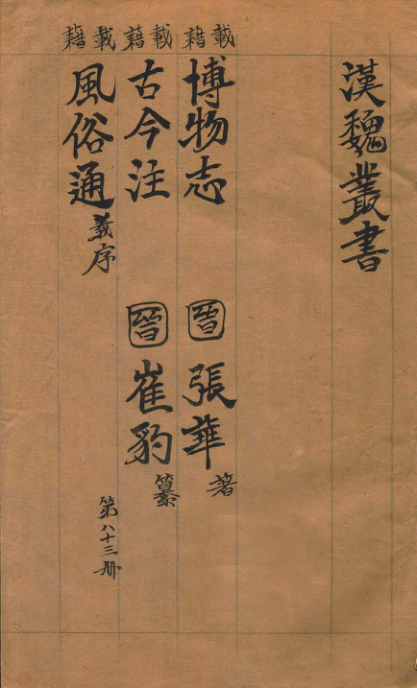 漢魏叢書
載籍 博物志 晉 張華 著
載籍 古今注 晉 崔豹 纂
載籍 風俗通義序
第八十三册